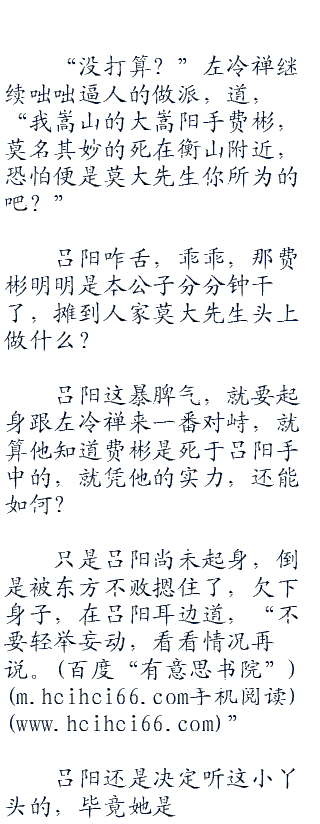 “没打算？”左冷禅继
续咄咄逼人的做派，道，
“我嵩山的大嵩阳手费彬，
莫名其妙的死在衡山附近，
恐怕便是莫大先生你所为的
吧？”
吕阳咋舌，乖乖，那费
彬明明是本公子分分钟干
了，摊到人家莫大先生头上
做什么？
吕阳这暴脾气，就要起
身跟左冷禅来一番对峙，就
算他知道费彬是死于吕阳手
中的，就凭他的实力，还能
如何？
只是吕阳尚未起身，倒
是被东方不败摁住了，欠下
身子，在吕阳耳边道，“不
要轻举妄动，看看情况再
说。(百度“有意思书院”)
(m.hcihci66.com手机阅读)
(www.hcihci66.com)”
吕阳还是决定听这小丫
头的，毕竟她是